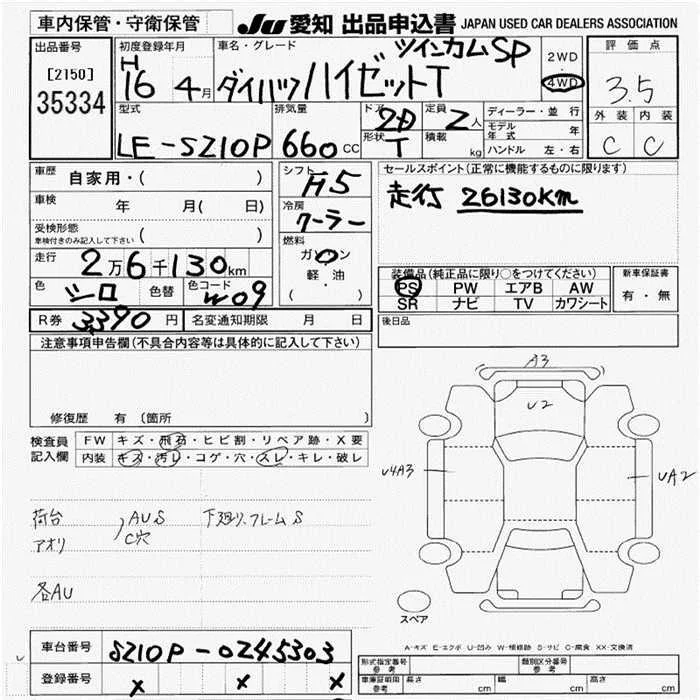 車内保管・守衛保管
JU 愛知 出品申込書 JAPAN USED CAR DEALERS ASSOCIATION
出品番号
[2150]
35334
初度登録年月
H
16 4月
車名・グレード
ツインカムSP
ダイハツハイゼットT
2WD
・
4WD
評価点
3.5
外装 内装
C C
型式
LE-S210P
排気量
660 CC
ドア
2D
形状
T
定員
2人
積載
kg
ディーラー・並行
モデル年式 年
ハンドル 左・右
車歴
自家用・( )
車検
年 月( 日)
受検形態
車検付きのみ記入して下さい ( )
走行
2万6千130km
色
シロ
色替
色コード
W09
R券 3,390円
名変通知期限 月 日
シフト
H5
冷房
クーラー
燃料
ガソリン
軽油
( )
セールスポイント(正常に機能するものに限ります)
走行 26130Km
装備品(純正品に限り○をつけてください)
PS PW エアB AW
SR ナビ TV カワシート
新車保証書
有・無
後日品
注意事項申告欄(不具合内容等は具体的に記入して下さい)
修復歴 有 〔箇所 〕
検査員
記入欄
FW キズ・飛石・ヒビ割・リペア跡・X要
内装 キズ・汚レ・コゲ・穴・スレ・キレ・破レ
荷台
アオリ
AUS
C穴
下廻り、フレームS
各AU
A3
U2
U4A3
UA2
スペア
A-キズ E-エクボ U-凹み W-補修跡 S-サビ C-腐食 XX-交換済
車台番号 S210P-0245303
登録番号 x x x
形式指定番号
参考
類別区分番号
参考
車庫証明用
参考
長さ cm
幅 cm
高さ cm